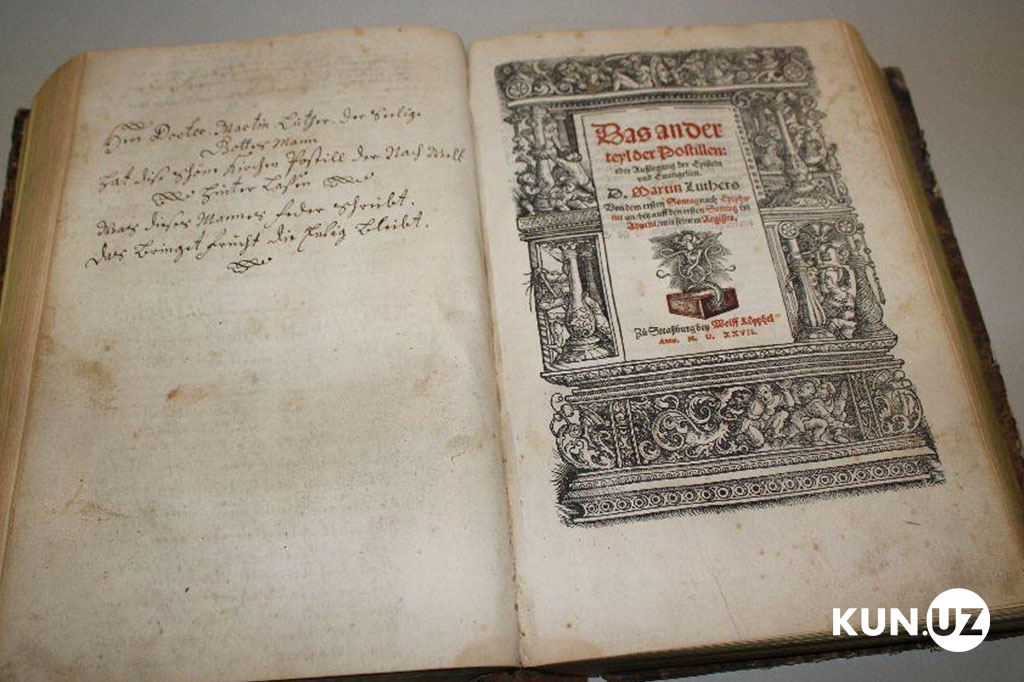 Herr Docter Martin Luther der Seelige
Gottes Mann
hat diese schöne Kirchen Postill der Nach Welt
hinter Laßen
Was dieses Mannes feder schreibt.
das bringet frucht die Ewig bleibt
Das ander
teyl der Postillen:
oder Außlegung der Episteln
und Euangelien.
D. Martin Luthers
Von dem ersten Sontag nach Epipha-
nie an/ biß auff den ersten Sontag im
Aduent/ mit seinem Register.
Zů Straßburg bey Wolff Köpphel
Anno. M. D. XXVII.
KUN.UZ